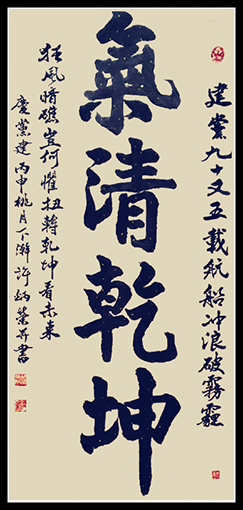 建黨九十又五載航船冲浪破霧霾
氣清乾坤
狂風暗礁豈何懼扭轉乾坤看未来
慶黨建丙申桃月下澣許炳榮并書